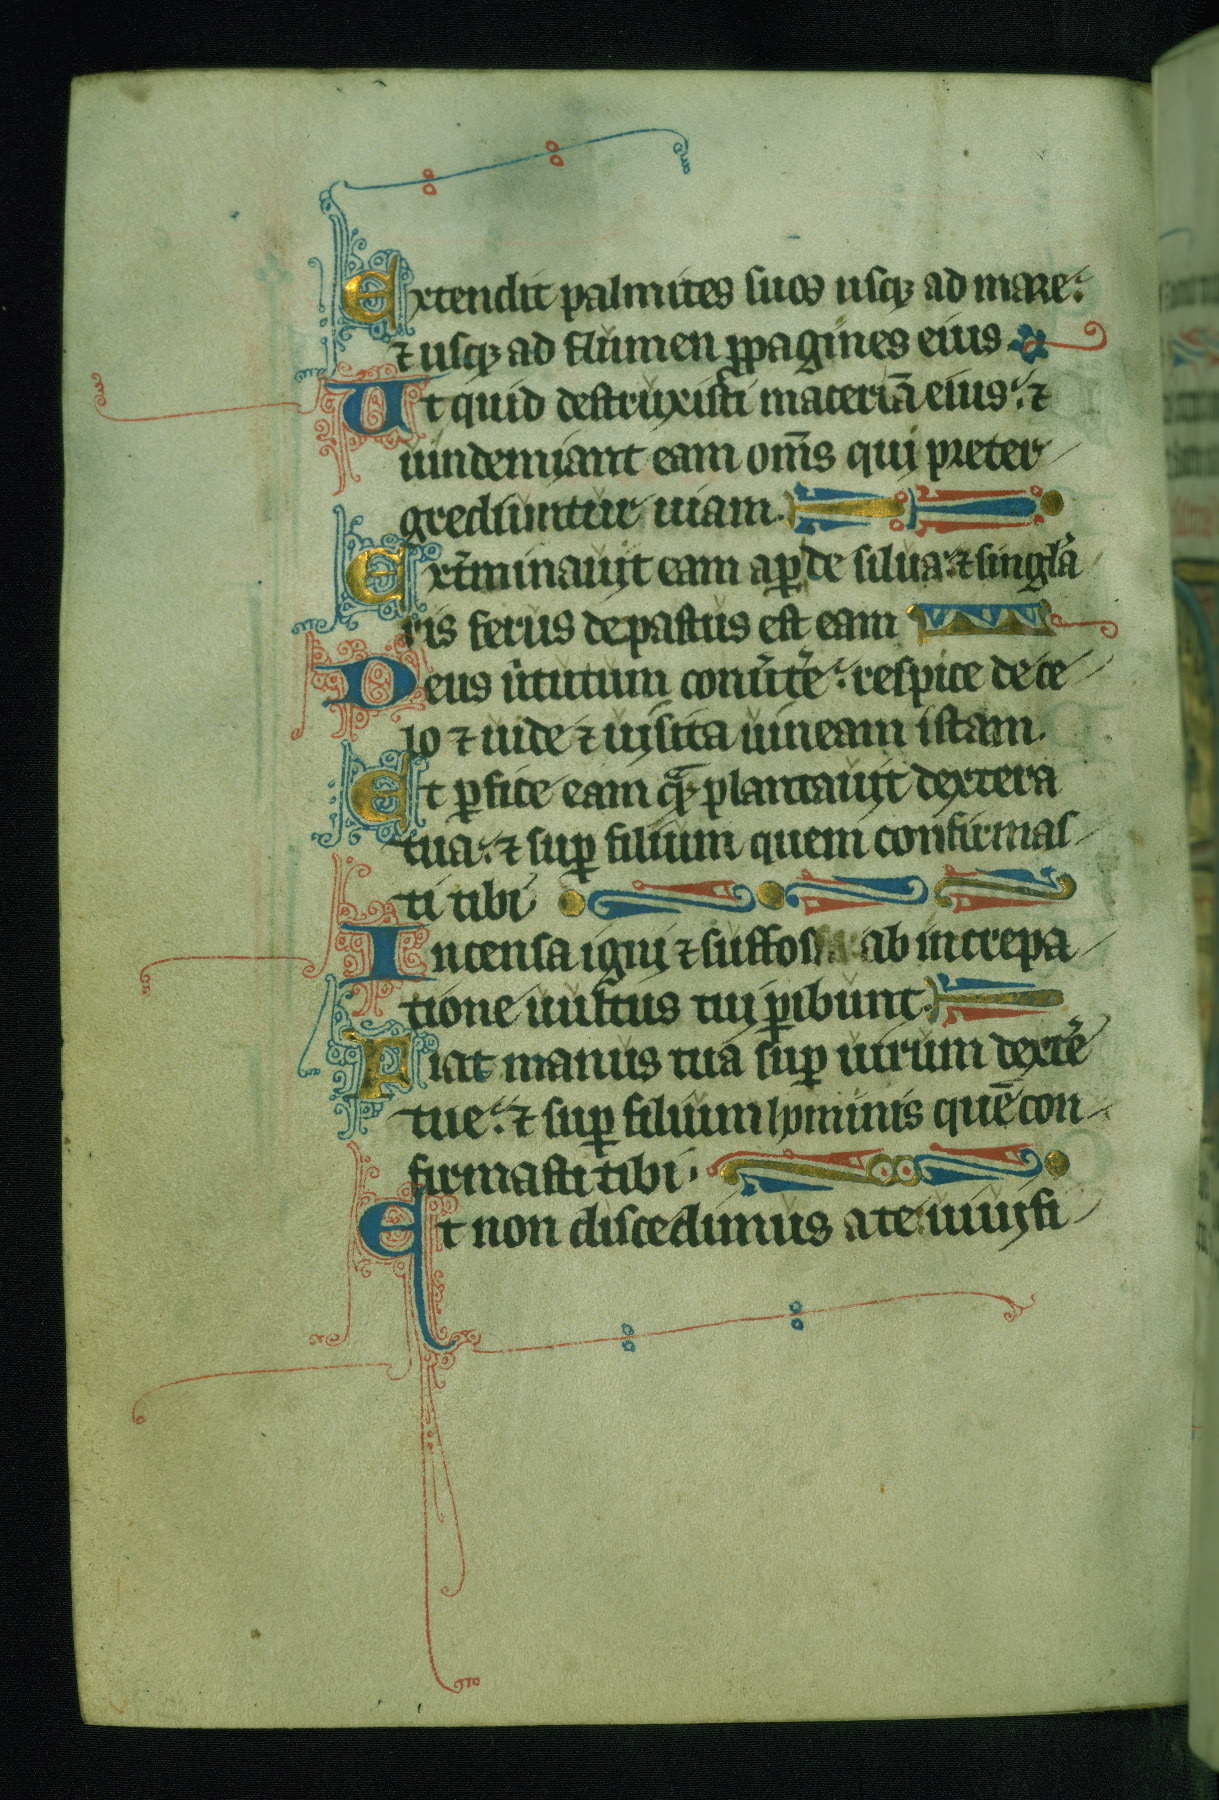 Extendit palmites suos usqꝫ ad mare:
⁊ usqꝫ ad flumen ꝓpagines eius.
Ut quid destruxisti maceriā eius: ⁊
uindemiant eam om̅s qui preter
grediuntur uiam.
Ext̅minauit eam aper de silua: ⁊ singla
ris ferus depastus est eam
Deus u̅tutum conu̅te̅: respice de ce
lo ⁊ uide ⁊ uisita uineam istam.
Et ꝑfice eam quā plantauit dextera
tua: ⁊ suꝑ filium quem confirmas
ti tibi
Incensa igni ⁊ suffossa: ab increpa
tione uultus tui ꝑibunt.
Fiat manus tua suꝑ uirum dexte̅
tue: ⁊ suꝑ filium hominis quē con
firmasti tibi.
Et non discedimus a te: uiuifi